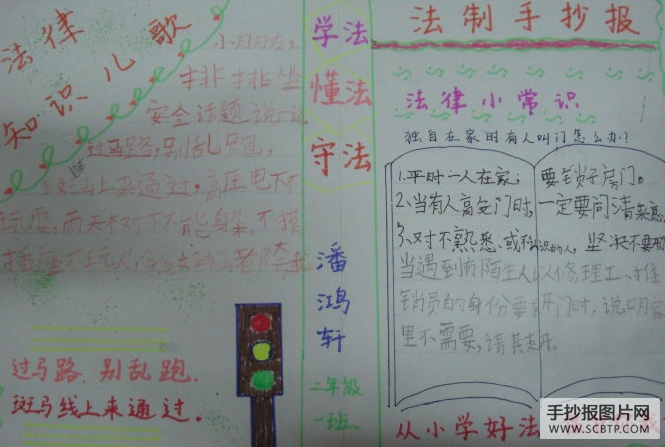 法律
知识儿歌
小朋友,
排排坐
安全话题说一说
过马路,别乱跑,
斑马线上来通过,高压电下不
玩耍,雨天树下不能躲。不摸
插座不玩火,
过马路 别乱跑.
斑马线上来通过。
学法
懂法
守法
潘
鸿
轩
二年级
一班
法制手抄报
法律小常识
独自在家时有人叫门怎么办?
1、平时一人在家, 要锁好房门。
2、当有人高交门时, 一定要问清来意
3、对不熟悉、或不认识的人, 坚决不要开
当遇到有陌生人以修理工、推
销员的身份要求开门时,说明家
里不需要,请其走开。
从小学好法
手抄报图片网
WWW.SCBTP.COM